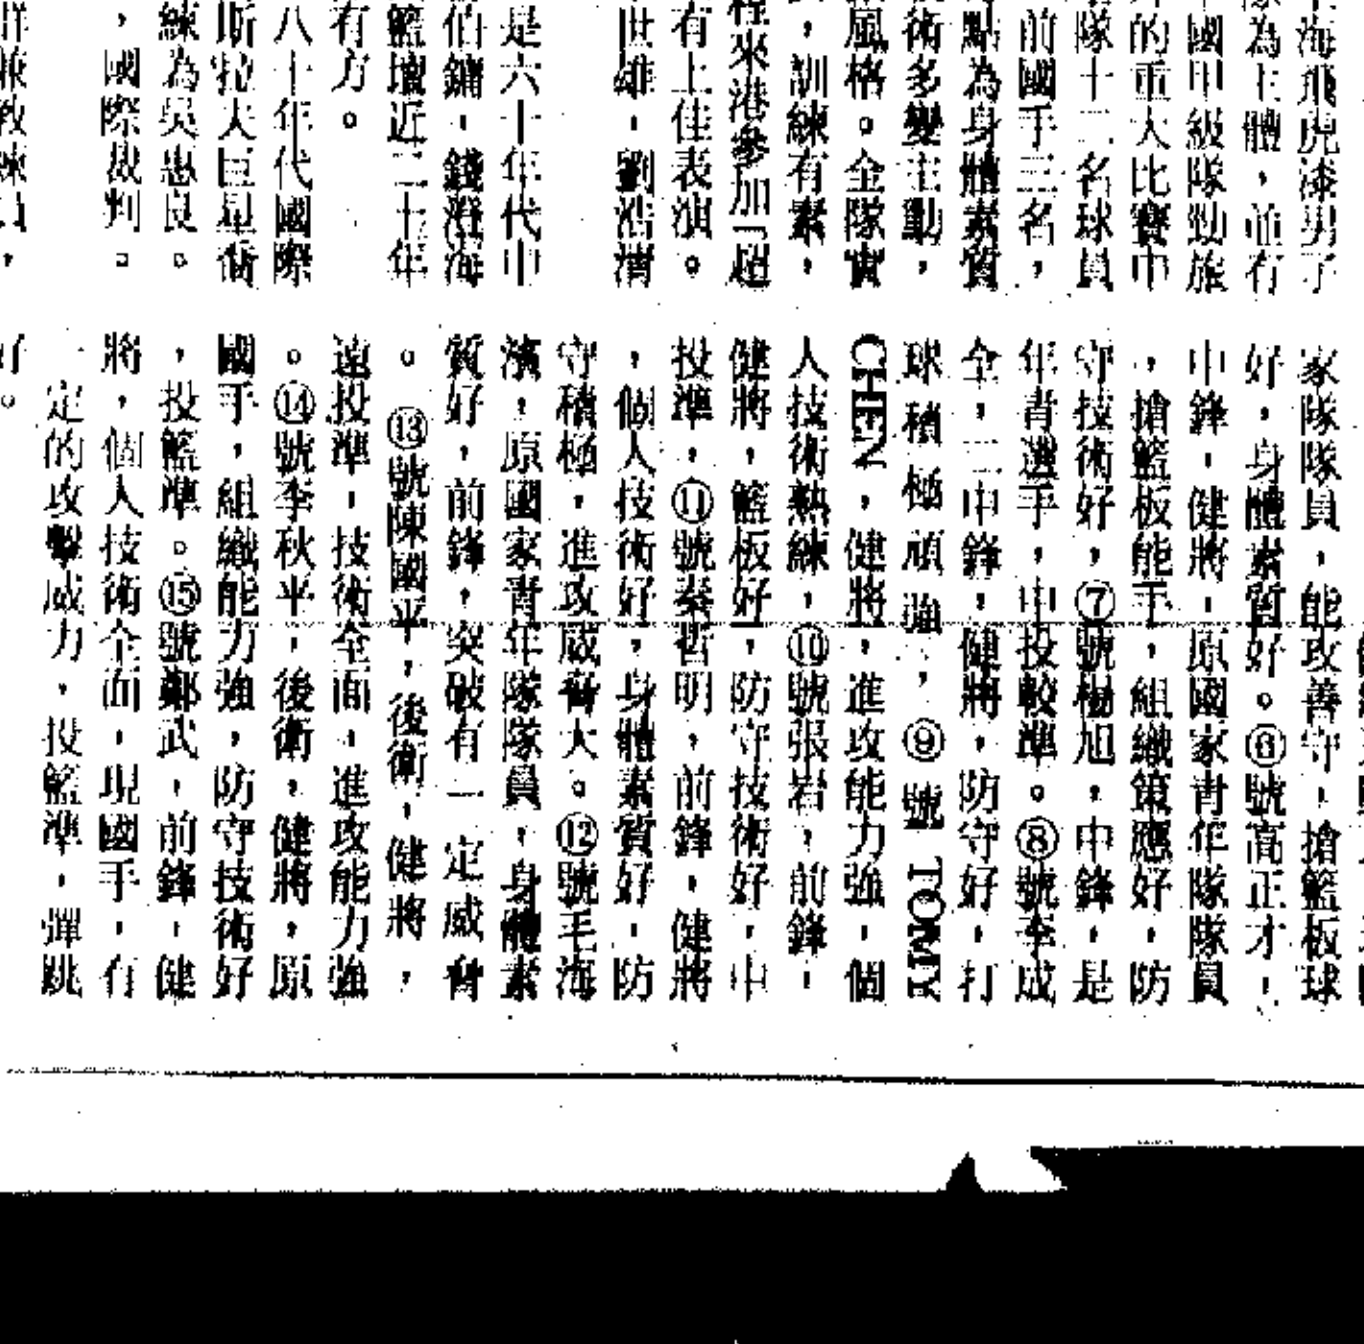 海飛虎漆男子
隊為主體，並有
國甲級隊勁旅
的重大比賽中
隊十二名球員
前國手三名，
點為身體素質
術多變主動，
風格。全隊實
，訓練有素，
程來港參加「超
有上佳表演。
世雄，劉浩清
是六十年代中
伯鏞，錢澄海
籃壇近二十年
有方。
八十年代國際
斯拉夫巨星喬
練為吳惠良。
，國際裁判。
群兼教練員，
家隊隊員，能攻善守，搶籃板球
好，身體素質好。⑥號高正才，
中鋒，健將，原國家青年隊隊員
，搶籃板能手，組織策應好，防
守技術好，⑦號楊旭，中鋒，是
年青選手，中投較準。⑧號李成
全，二中鋒，健將，防守好，打
球積極頑強，⑨號 TOMY
CHEN，健將，進攻能力強，個
人技術熟練，⑩號張岩，前鋒，
健將，籃板好，防守技術好，中
投準，⑪號秦哲明，前鋒，健將
，個人技術好，身體素質好，防
守積極，進攻威脅大。⑫號毛海
濱，原國家青年隊隊員，身體素
質好，前鋒，突破有一定威脅
。⑬號陳國平，後衛，健將，
遠投準，技術全面，進攻能力強
。⑭號李秋平，後衛，健將，原
國手，組織能力強，防守技術好
，投籃準。⑮號鄭武，前鋒，健
將，個人技術全面，現國手，有
一定的攻擊威力，投籃準，彈跳
好。